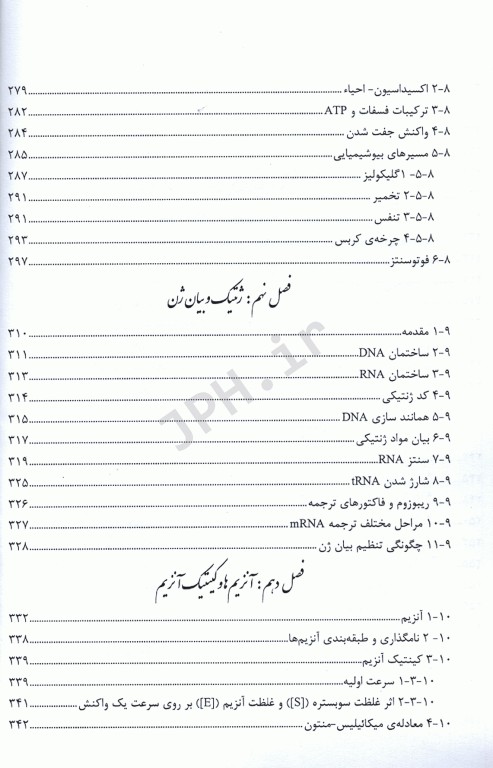 ۸-۲ اکسیداسیون- احیاء ........ ۲۷۹
۸-۳ ترکیبات فسفات و ATP ........ ۲۸۲
۸-۴ واکنش جفت شدن ........ ۲۸۴
۸-۵ مسیرهای بیوشیمیایی ........ ۲۸۵
۸-۵-۱ گلیکولیز ........ ۲۸۷
۸-۵-۲ تخمیر ........ ۲۹۱
۸-۵-۳ تنفس ........ ۲۹۱
۸-۵-۴ چرخه‌ی کربس ........ ۲۹۳
۸-۶ فوتوسنتز ........ ۲۹۷
فصل نهم: ژنتیک و بیان ژن
۹-۱ مقدمه ........ ۳۱۰
۹-۲ ساختمان DNA ........ ۳۱۱
۹-۳ ساختمان RNA ........ ۳۱۳
۹-۴ کد ژنتیکی ........ ۳۱۴
۹-۵ همانند سازی DNA ........ ۳۱۵
۹-۶ بیان مواد ژنتیکی ........ ۳۱۷
۹-۷ سنتز RNA ........ ۳۱۹
۹-۸ شارژ شدن tRNA ........ ۳۲۵
۹-۹ ریبوزوم و فاکتورهای ترجمه ........ ۳۲۶
۹-۱۰ مراحل مختلف ترجمه mRNA ........ ۳۲۷
۹-۱۱ چگونگی تنظیم بیان ژن ........ ۳۲۸
فصل دهم: آنزیم ها و کینتیک آنزیم
۱۰-۱ آنزیم ........ ۳۳۲
۱۰-۲ نامگذاری و طبقه‌بندی آنزیم‌ها ........ ۳۳۸
۱۰-۳ کینتیک آنزیم ........ ۳۳۹
۱۰-۳-۱ سرعت اولیه ........ ۳۳۹
۱۰-۳-۲ اثر غلظت سوبستره ([S]) و غلظت آنزیم ([E]) بر روی سرعت یک واکنش ........ ۳۴۱
۱۰-۴ معادله‌ی میکائیلیس-منتون ........ ۳۴۲
JPH.ir